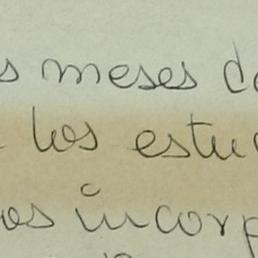 s meses de
los estu
os incorp